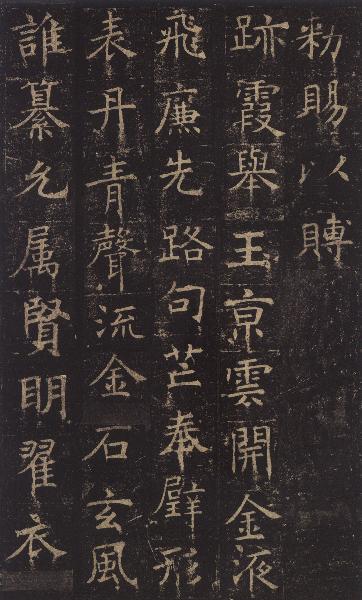 勑賜以賻
跡霞舉玉京雲開金液
飛廉先路句芒奉璧形
表丹青聲流金石玄風
誰纂允属賢明翟衣